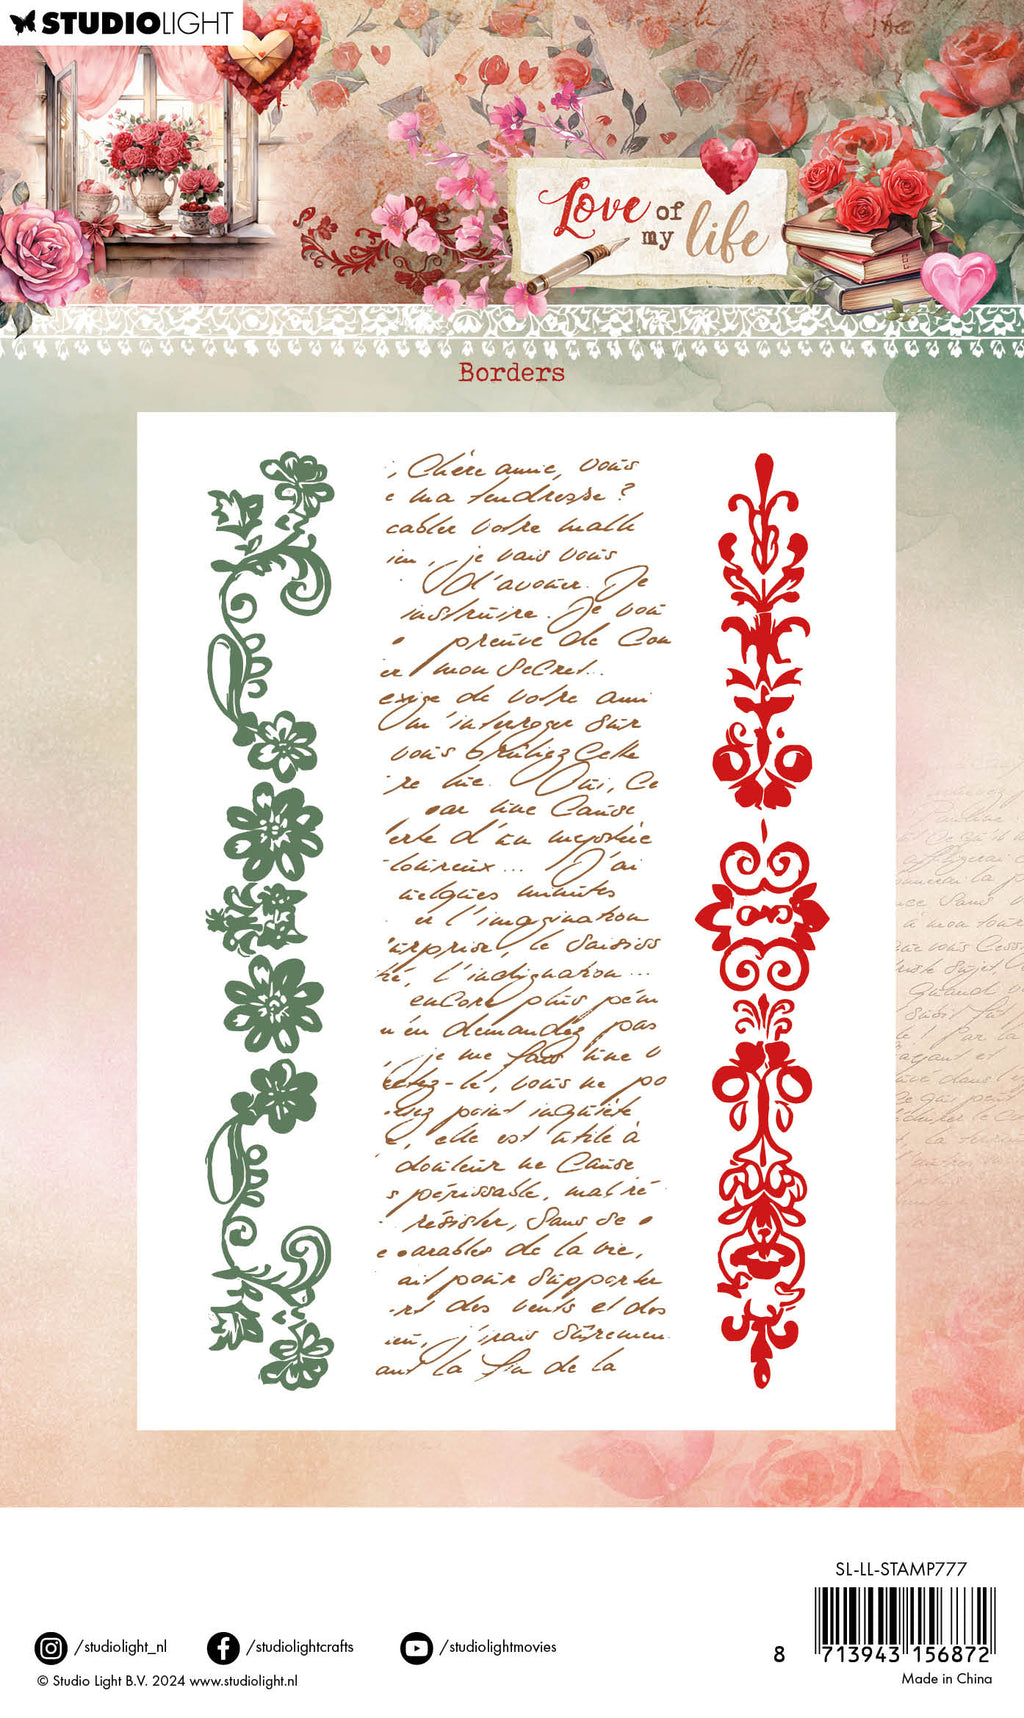 STUDIOLIGHT
Love of
my life
Borders
, Chère amie, vous
e ma tendresse ?
cabler votre malh
je vais vous
d'avouer. Je
instruire. Je vou
preuve de Con
er mon secret..
exige de votre ami
m'interroger sur
vous brûliez cette
re vie. Oui, Ce
par une Cause
erte d'un mystère
loureux... J'ai
uelques minutes
er l'imagination
urprise, le saisiss
té, l'indignation...
encore plus pém
n'en demandez pas
, je me fais une v
, vous ne po
point inquiète
e, elle est utile à
douleur ne Cause
s périssable, mal ré
résister, Sans se
arables de la vie,
ait pour Supporter
rt des vents et des
j'irais sûremen
ant la fin de la
SL-LL-STAMP777
/studiolight_nl /studiolightcrafts /studiolightmovies
8 713943 156872
© Studio Light B.V. 2024 www.studiolight.nl
Made in China